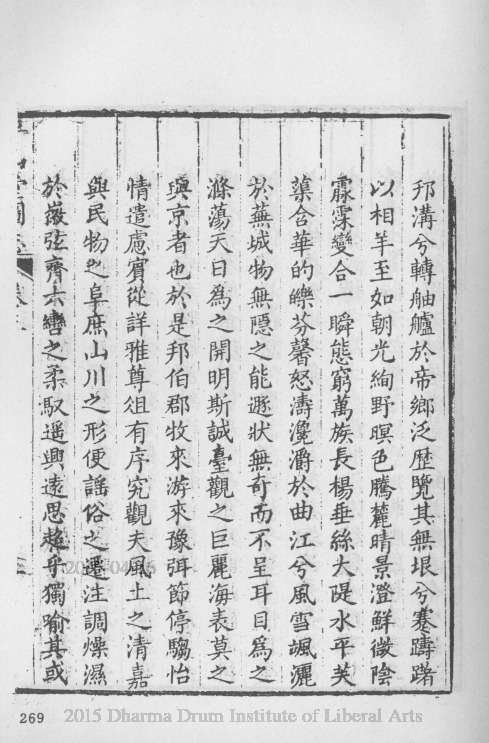 邗溝兮轉舳艫於帝鄉泛歷覽其無垠兮蹇躊躇
以相羊至如朝光絢野暝色騰麓晴景澄鮮微陰
霢霂變合一瞬態窮萬族長楊垂絲大隄水平芙
蕖含華的皪芬馨怒濤瀺灂於曲江兮風雪颯灑
於蕪城物無隱之能遯狀無奇而不呈耳目為之
滌蕩天日為之開明斯誠臺觀之巨麗海表莫之
與京者也於是邦伯郡牧來游來豫弭節停驂怡
情遣慮賓從詳雅尊俎有序究觀夫風土之清嘉
與民物之阜庶山川之形便謠俗之遷注調燥濕
於徽弦齊六轡之柔馭遥興遠思超乎獨喻其或
269
2015 Dharma Drum Institute of Liberal Arts